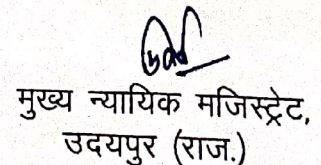 मुख्य न्यायिक मजिस्ट्रेट,
उदयपुर (राज.)